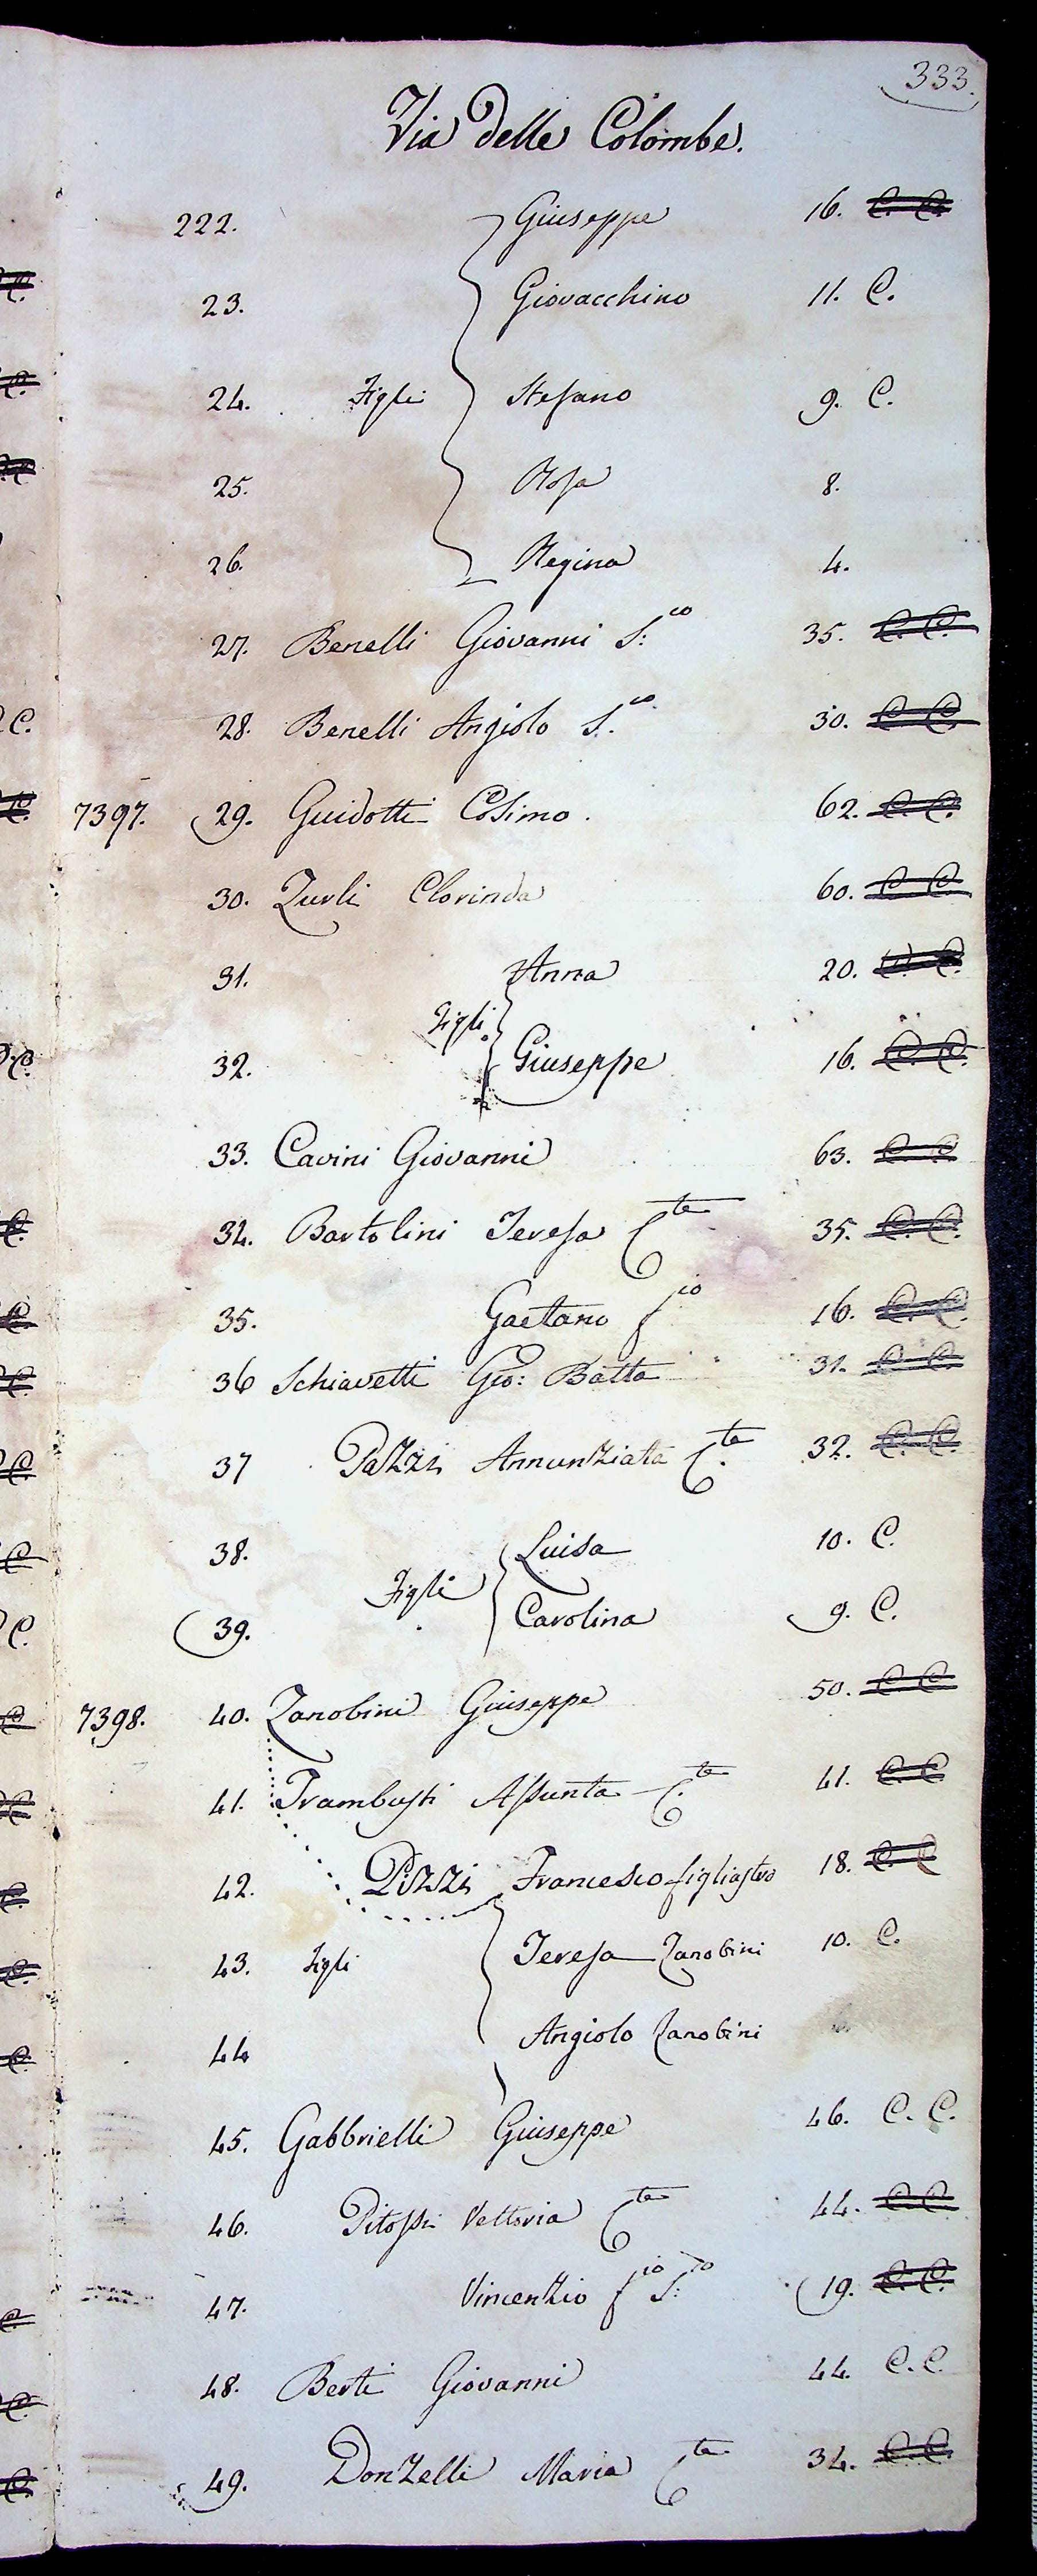 333.
Via delle Colombe.
222. Giuseppe 16. C. C.
23. Giovacchino 11. C.
24. Figli Stefano 9. C.
25. Rosa 8.
26. Regina 4.
27. Benelli Giovanni S:co 35. C. C.
28. Benelli Angiolo S.co 30. C. C.
7397. 29. Guidotti Cosimo. 62. C. C.
30. Zurli Clorinda 60. C. C.
31. Anna 20. C. C.
Figli
32. Giuseppe 16. C. C.
33. Cavini Giovanni 63. C. C.
34. Bartolini Teresa Cte 35. C. C.
35. Gaetano fio 16. C. C.
36 Schiavetti Gio: Batta 31. C. C.
37 Pazzi Annunziata C.te 32. C. C.
38. Luisa 10. C.
Figli
39. Carolina 9. C.
7398. 40. Zanobini Giuseppe 50. C. C.
41. Trambusti Assunta C.te 41. C. C.
42. Pizzi Francesco figliastro 18. C. C
43. Figli Teresa Zanobini 10. C.
44 Angiolo Zanobini
45. Gabbrielli Giuseppe 46. C. C.
46. Pitossi Vettoria Cte 44. C. C.
47. Vincenzio fio S:
19. C. C.
48. Berti Giovanni 44. C. C.
49. Donzelli Maria Cte 34. C. C.